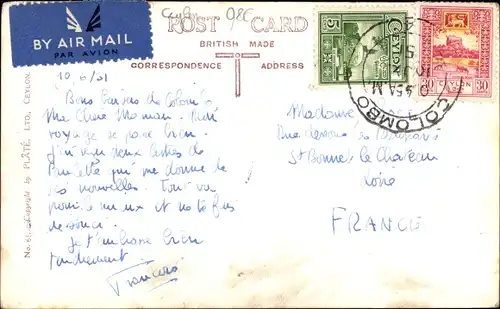 Ceylon
POST CARD
BRITISH MADE
CORRESPONDENCE
ADDRESS
BY AIR MAIL
PAR AVION
5
CEYLON
30 CEYLON 30
COLOMBO
10/6/51
Bons baisers de Colombo
Ma Chère Maman. Mon
voyage se passe bien.
J'ai reçu deux lettres de
Paulette qui me donne de
vos nouvelles. Tout va
pour le mieux et ne te fais
de souci.
Je t'embrasse bien
tendrement
François
Madame
Rue
St Bonnet le Chateau
Loire
FRANCE
Copyright by PLÂTÉ, LTD., CEYLON.